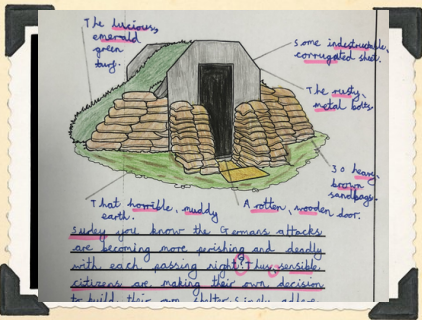 The luscious,
emerald
green
turf.
Some indestructable,
corrugated sheet.
The rusty,
metal bolts.
30 heavy,
brown
sandbags.
That horrible, muddy
earth.
A rotten, wooden door.
surley you know the Germans attacks
are becoming more perishing and deadly
with each passing night! Thus sensible
citizens are making their own decision
to build their own shelter